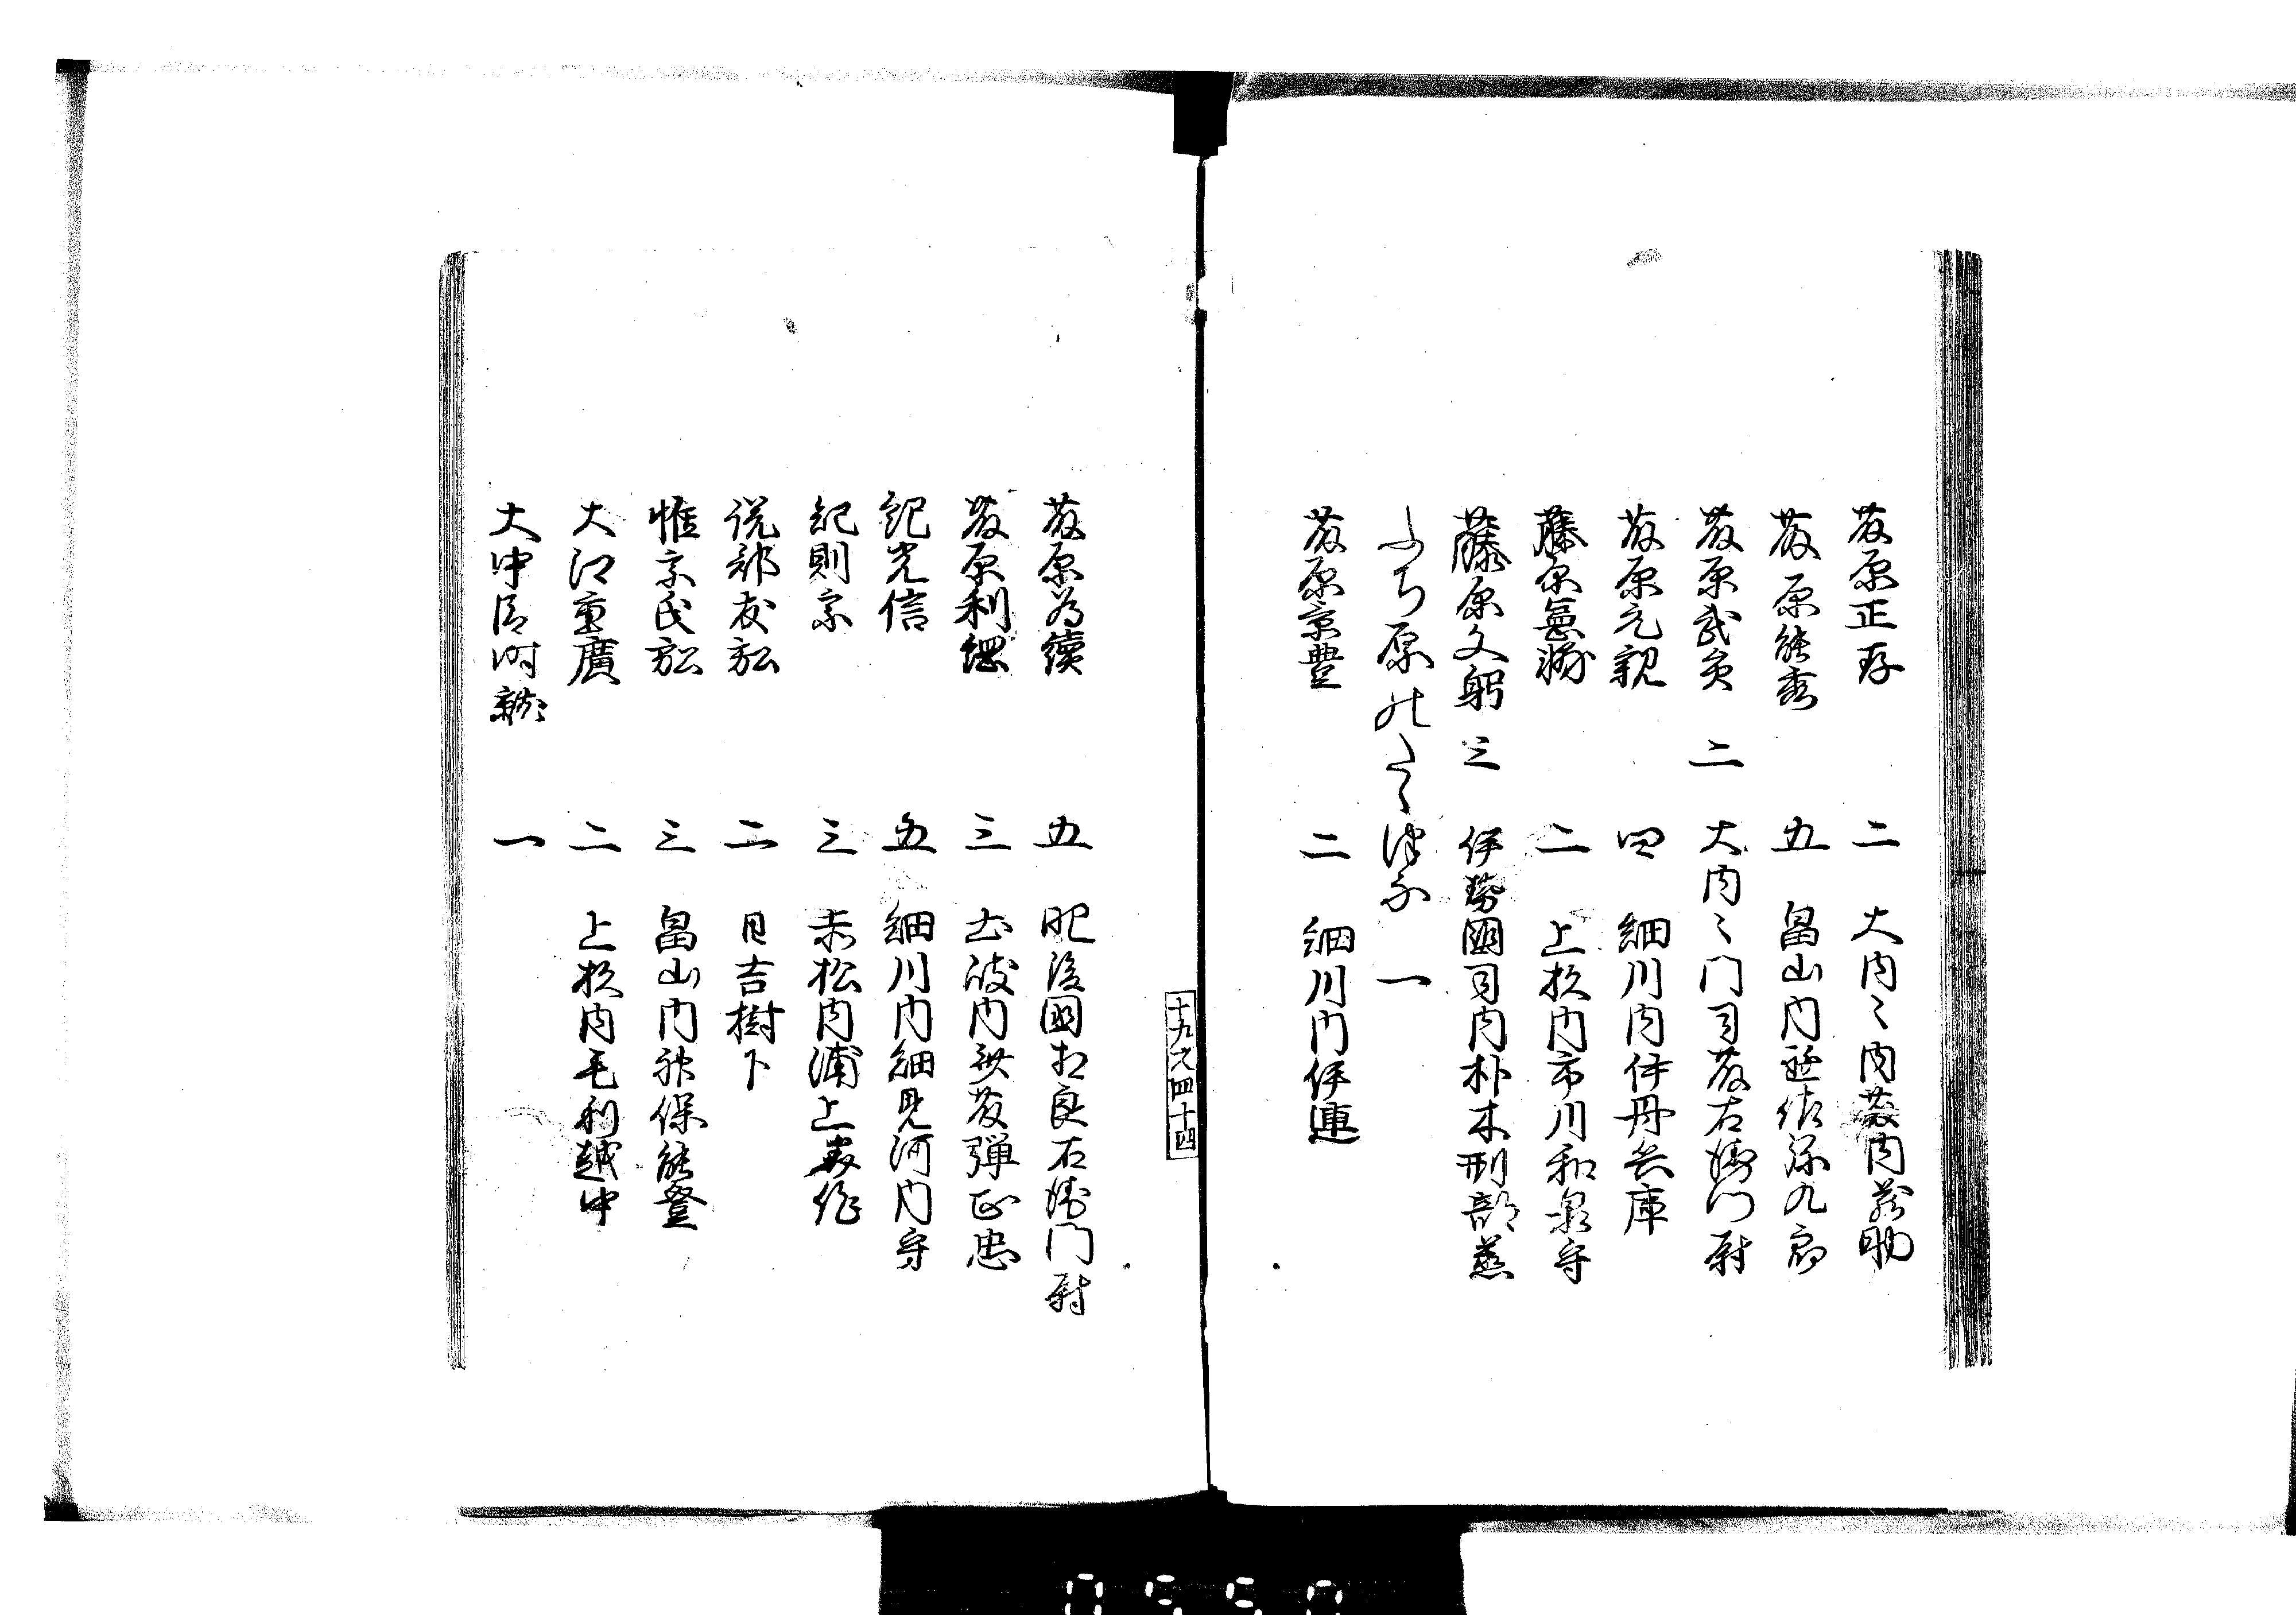 藤原正存 二 大内々内藤内蔵助
藤原能秀 五 畠山内遊佐弥九郎
藤原武員 二 大内々門司藤右衛門尉
藤原元親 四 細川内伊丹兵庫
藤原 二 上杦内市川和泉守
藤原文躬 三 伊勢國司内朴木刑部丞
ふち原の 一
藤原京豊 二 細川内伊連
十九之四十四
藤原為續 五 肥後國相良右衛門尉
藤原利綱 三 土岐内斎藤弾正忠
紀光信 五 細川内細見河内守
紀則宗 三 赤松内浦上美作
祝部友弘 二 日吉樹下
惟宗氏弘 三 畠山内神保能登
大江重廣 二 上杦内毛利越中
大中臣時 一